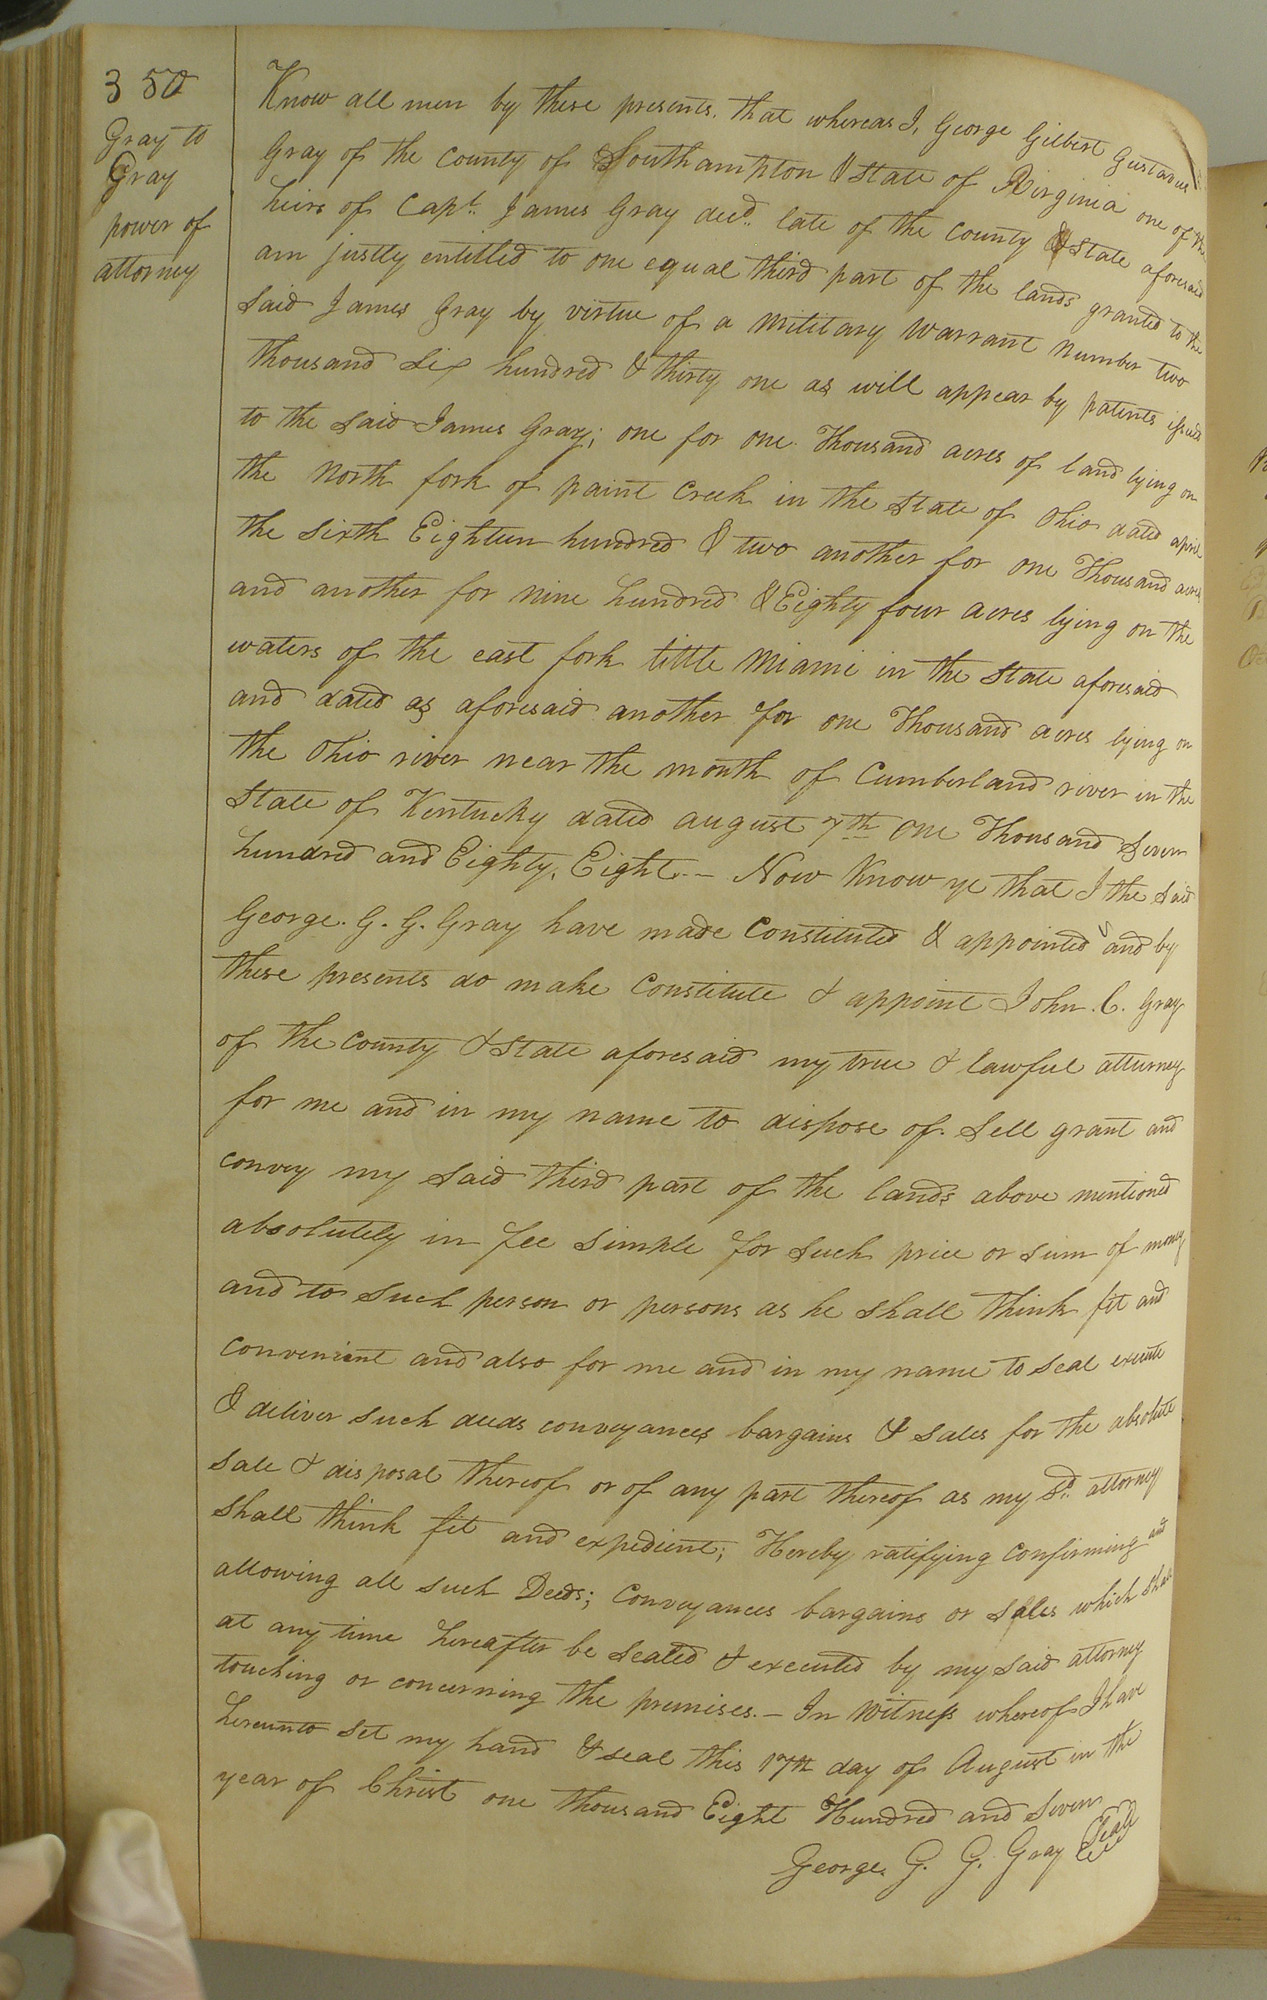 350
Gray to
Gray
power of
attorney
Know all men by these presents, that whereas I, George Gilbert Gustavus
Gray of the county of Southampton & State of Virginia one of the
heirs of Capt. James Gray decd. late of the county & State aforesaid
am justly entitled to one equal third part of the lands granted to the
Said James Gray by virtue of a Military Warrant Number two
thousand Six hundred & thirty one as will appear by patents issued
to the said James Gray; one for one Thousand acres of land lying on
the North fork of paint Creek in the State of Ohio dated april
the sixth Eighteen hundred & two another for one Thousand acres
and another for nine hundred & Eighty four acres lying on the
waters of the east fork little Miami in the State aforesaid
and dated as aforesaid another for one Thousand acres lying on
the Ohio river near the mouth of Cumberland river in the
State of Kentucky dated august 7th One Thousand Seven
hundred and Eighty, Eight.- Now Know ye that I the said
George. G. G. Gray have made Constituted & appointed and by
these presents do make Constitute & appoint John. C. Gray
of the County & State aforesaid my true & lawful atturney
for me and in my name to dispose of Sell grant and
convey my Said third part of the lands above mentioned
absolutely in fee Simple for such price or sum of money
and to such person or persons as he shall think fit and
convenient and also for me and in my name to seal execute
& deliver such deeds conveyances bargains & sales for the absolute
sale & disposal thereof or of any part thereof as my sd. attorney
shall think fit and expedient; Hereby ratifying Confirming and
allowing all such Deeds; Conveyances bargains or sales which shall
at any time hereafter be sealed & executed by my said attorney
touching or concerning the premises.- In Witness whereof I have
hereunto set my hand & seal this 17th day of August in the
year of Christ one thousand Eight Hundred and Seven
George. G. G. Gray Seal